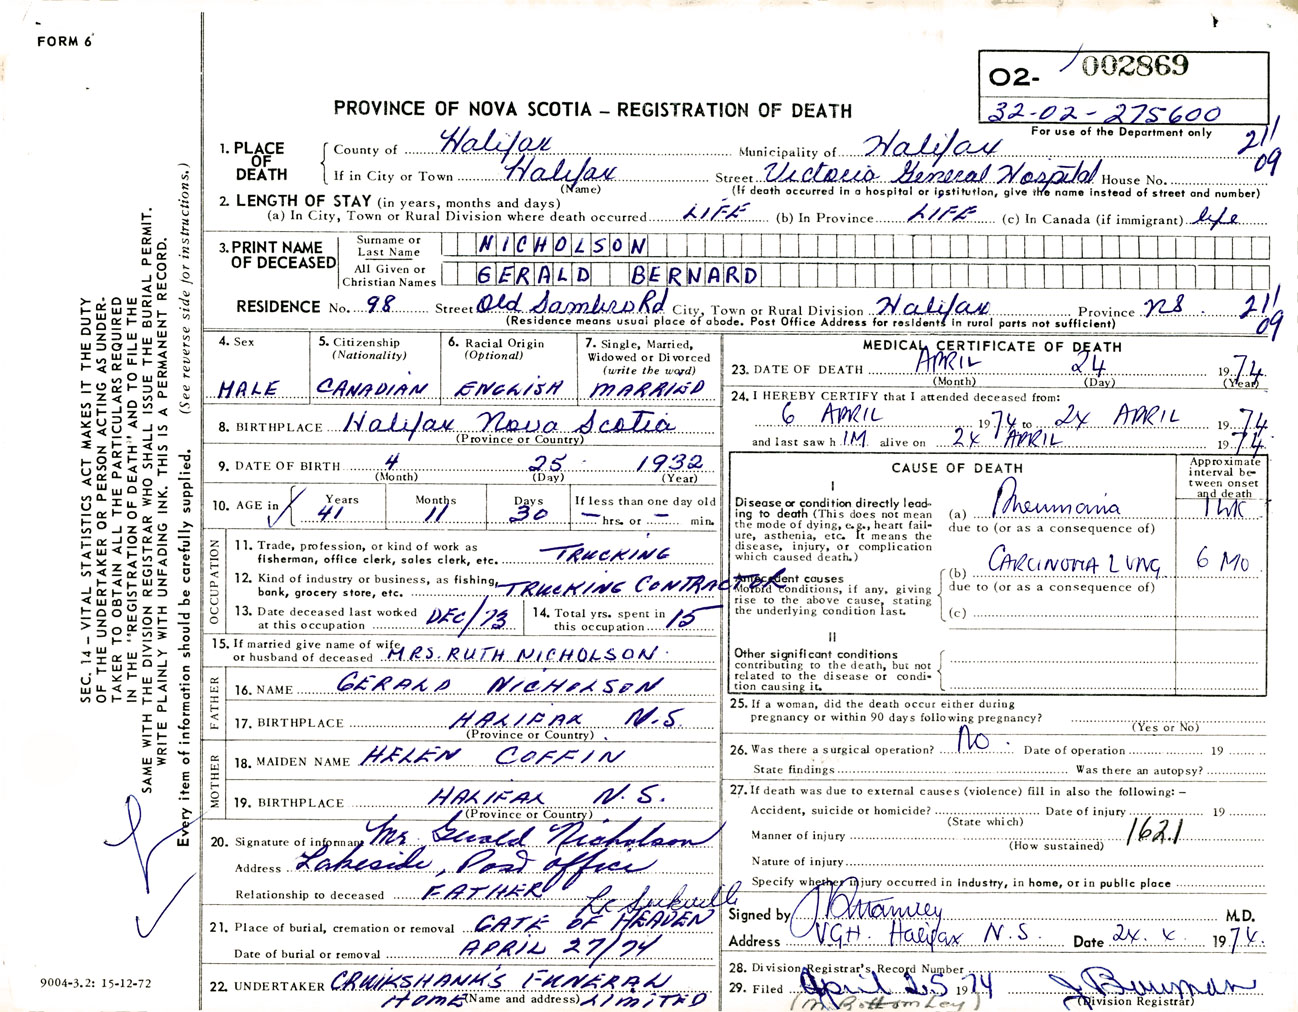 FORM 6
O2- 002869
32-02-275600
For use of the Department only
PROVINCE OF NOVA SCOTIA – REGISTRATION OF DEATH
211
09
1. PLACE OF DEATH
County of Halifax Municipality of Halifax
If in City or Town Halifax Street Victoria General Hospital House No.
(Name) (If death occurred in a hospital or ipstitution, give the name instead of street and number)
2. LENGTH OF STAY (in years, months and days)
(a) In City, Town or Rural Division where death occurred LIFE (b) In Province LIFE (c) In Canada (if immigrant) life
3. PRINT NAME OF DECEASED
Surname or Last Name NICHOLSON
All Given or Christian Names GERALD BERNARD
RESIDENCE No. 98 Street Old Sambro Rd City, Town or Rural Division Halifax Province NS. 211
09
(Residence means usual place of abode. Post Office Address for residents in rural parts not sufficient)
4. Sex
MALE
5. Citizenship
(Nationality)
CANADIAN
6. Racial Origin
(Optional)
ENGLISH
7. Single, Married,
Widowed or Divorced
(write the word)
MARRIED
8. BIRTHPLACE Halifax Nova Scotia
(Province or Country)
9. DATE OF BIRTH 4 25 1932
(Month) (Day) (Year)
10. AGE in
Years Months Days If less than one day old
41 11 30 – hrs. or – min.
OCCUPATION
11. Trade, profession, or kind of work as
fisherman, office clerk, sales clerk, etc. TRUCKING
12. Kind of industry or business, as fishing,
bank, grocery store, etc. TRUCKING CONTRACTOR
13. Date deceased last worked
at this occupation DEC/73
14. Total yrs. spent in
this occupation 15
15. If married give name of wife
or husband of deceased MRS. RUTH NICHOLSON
FATHER
16. NAME GERALD NICHOLSON
17. BIRTHPLACE HALIFAX N.S.
(Province or Country)
MOTHER
18. MAIDEN NAME HELEN COFFIN
19. BIRTHPLACE HALIFAX N.S.
(Province or Country)
20. Signature of informant Mr Gerald Nicholson
Address Lakeside, Post office
Relationship to deceased FATHER
21. Place of burial, cremation or removal GATE OF HEAVEN
Date of burial or removal APRIL 27/74
22. UNDERTAKER CRUIKSHANK'S FUNERAL
HOME (Name and address) LIMITED
MEDICAL CERTIFICATE OF DEATH
23. DATE OF DEATH APRIL 24 1974
(Month) (Day) (Year)
24. I HEREBY CERTIFY that I attended deceased from:
6 APRIL 1974 to 24 APRIL 1974
and last saw h IM alive on 24 APRIL 1974.
CAUSE OF DEATH
Approximate
interval be-
tween onset
and death
I
Disease or condition directly lead-
ing to death (This does not mean
the mode of dying, e.g., heart fail-
ure, asthenia, etc. It means the
disease, injury, or complication
which caused death.)
(a) Pneumonia 1 WK
due to (or as a consequence of)
Antecedent causes
Morbid conditions, if any, giving
rise to the above cause, stating
the underlying condition last.
(b) CARCINOMA LUNG 6 MO
due to (or as a consequence of)
(c)
II
Other significant conditions
contributing to the death, but not
related to the disease or condi-
tion causing it.
25. If a woman, did the death occur either during
pregnancy or within 90 days following pregnancy?
(Yes or No)
26. Was there a surgical operation? No Date of operation 19
State findings Was there an autopsy?
27. If death was due to external causes (violence) fill in also the following: –
Accident, suicide or homicide? Date of injury 19
(State which)
Manner of injury 1621
(How sustained)
Nature of injury
Specify whether injury occurred in industry, in home, or in public place
Signed by M.D.
Address VGH. Halifax N.S. Date 24. 4. 1974.
28. Division Registrar's Record Number
29. Filed April 25 1974
(Division Registrar)
SEC. 14 – VITAL STATISTICS ACT MAKES IT THE DUTY
OF THE UNDERTAKER OR PERSON ACTING AS UNDER-
TAKER TO OBTAIN ALL THE PARTICULARS REQUIRED
IN THE "REGISTRATION OF DEATH" AND TO FILE THE
SAME WITH THE DIVISION REGISTRAR WHO SHALL ISSUE THE BURIAL PERMIT.
WRITE PLAINLY WITH UNFADING INK. THIS IS A PERMANENT RECORD.
Every item of information should be carefully supplied. (See reverse side for instructions.)
9004-3.2: 15-12-72